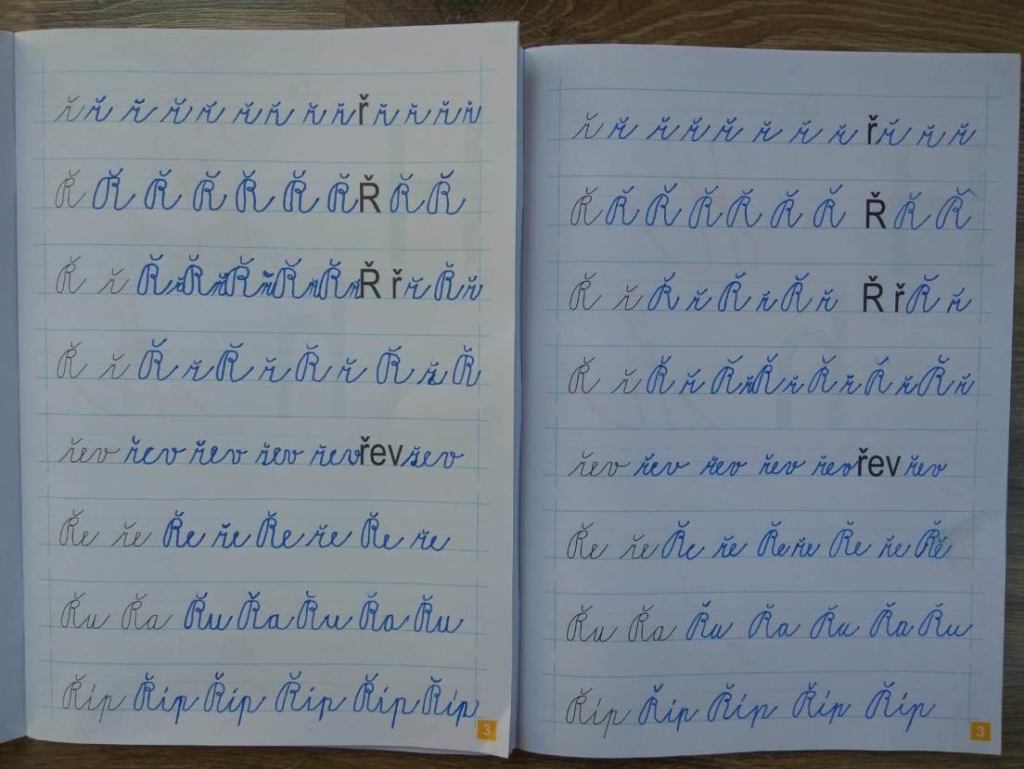 ř ř ř ř ř ř ř ř ř ř ř ř ř ř
Ř Ř Ř Ř Ř Ř Ř Ř Ř Ř
Ř ř Ř ř Ř ř Ř ř Ř ř Ř ř Ř ř ř Ř ř
Ř ř Ř ř Ř ř Ř ř Ř ř Ř
řev řev řev řev řev řev řev
Ře ře Ře ře Ře ře Ře ře
Řu Řa Řu Řa Řu Řa Řu
Říp Říp Říp Říp Říp Říp
3
ř ř ř ř ř ř ř ř ř ř ř ř
Ř Ř Ř Ř Ř Ř Ř Ř Ř Ř
Ř ř Ř ř Ř ř Ř ř Ř ř Ř ř
Ř ř Ř ř Ř ř Ř ř Ř ř Ř ř Ř ř
řev řev řev řev řev řev řev
Ře ře Ře ře Ře ře Ře ře Ře
Řu Řa Řu Řa Řu Řa Řu
Říp Říp Říp Říp Říp
3